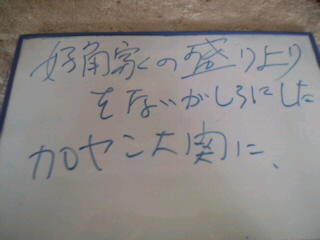 好角家の盛りより
をないがしろにした
カロヤン大関に、